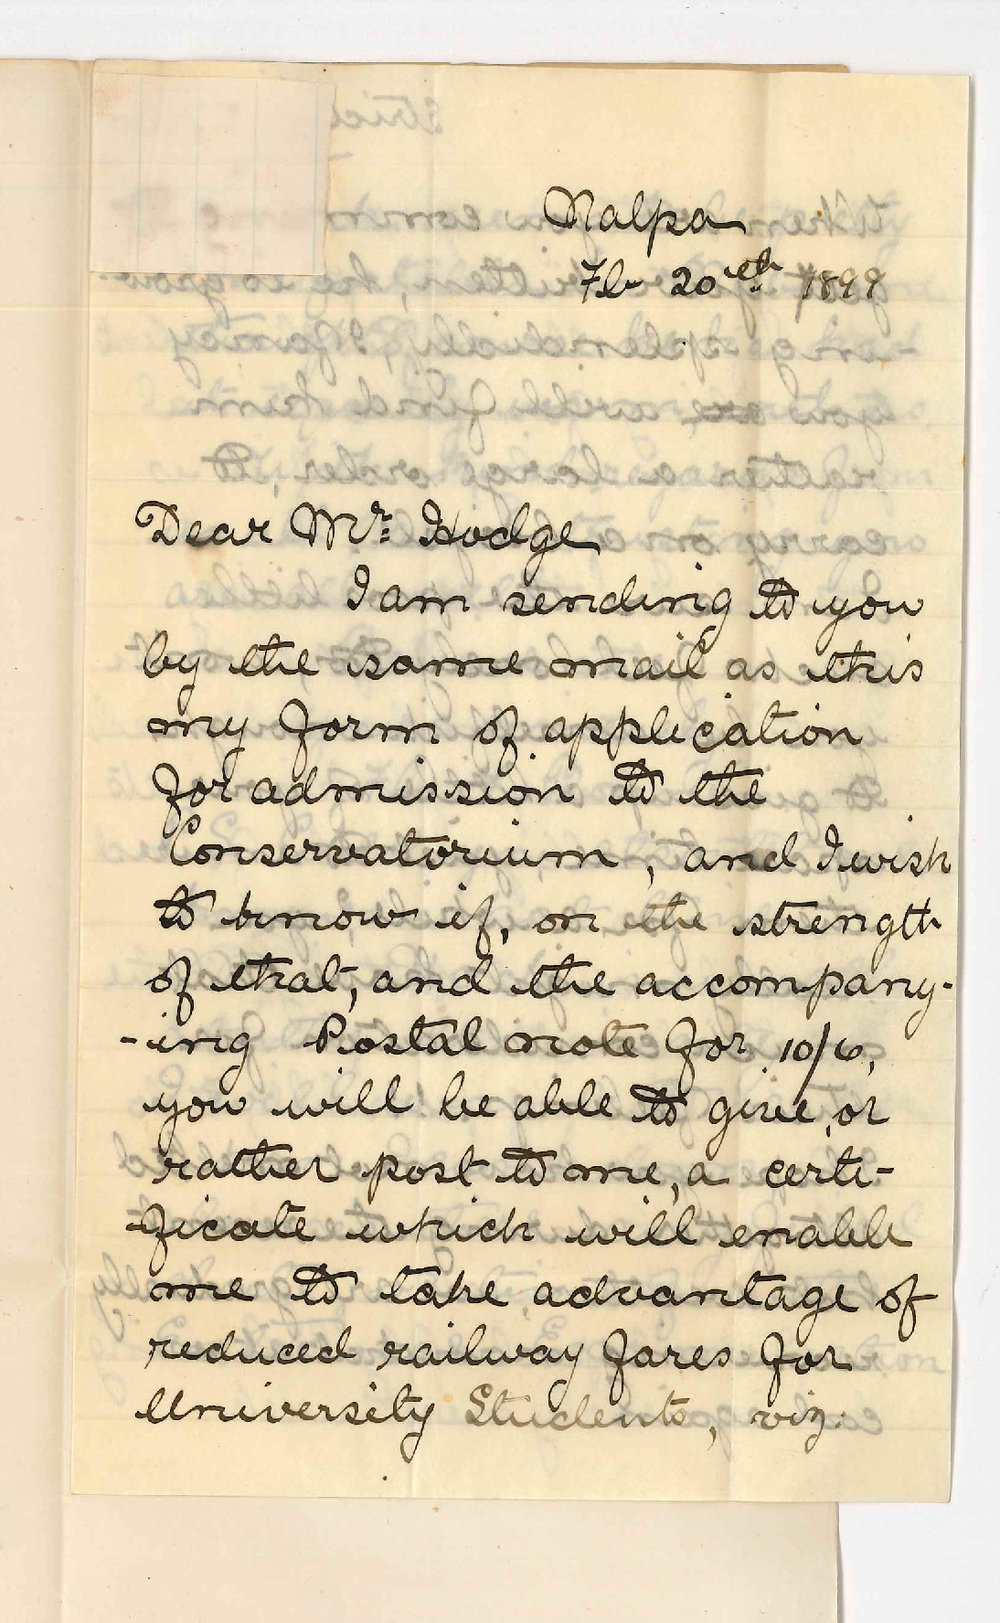 Nalpa
Feb 20th 1899
Dear Mr. Hodge
I am sending to you
by the same mail as this
my form of application
for admission to the
Conservatorium, and I wish
to know if, on the strength
of that, and the accompany-
-ing Postal note for 10/6,
you will be able to give, or
rather post to me, a certi-
-ficate which will enable
me to take advantage of
reduced railway fares for
University Students, viz.